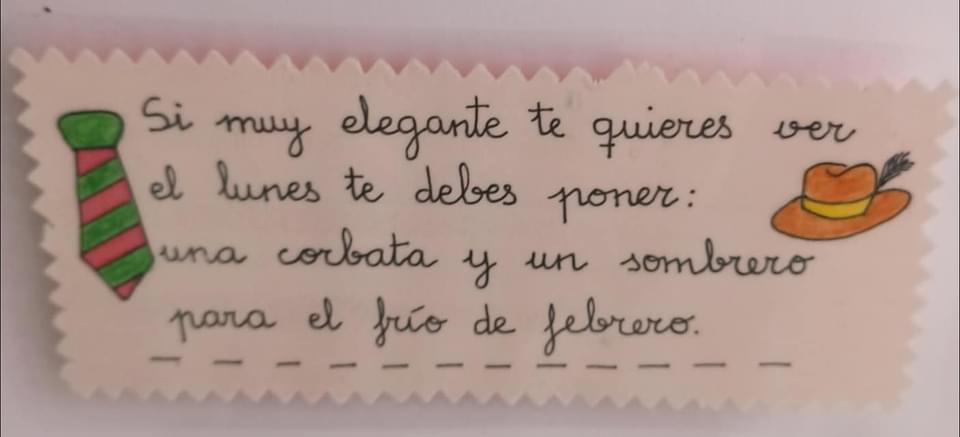 Si muy elegante te quieres ver
el lunes te debes poner:
una corbata y un sombrero
para el frío de febrero.